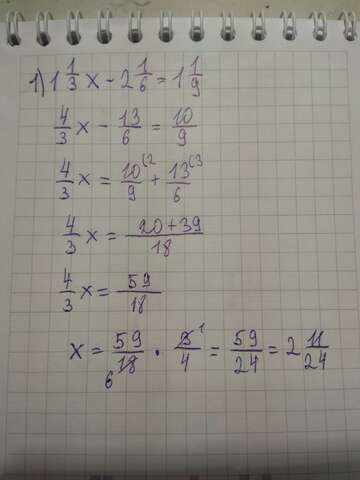 1) 1 1/3 x - 2 1/6 = 1 1/9
4/3 x - 13/6 = 10/9
4/3 x = 10/9 (2 + 13/6 (3
4/3 x = 20+39/18
4/3 x = 59/18
x = 59/18 6 · 3/4 1 = 59/24 = 2 11/24